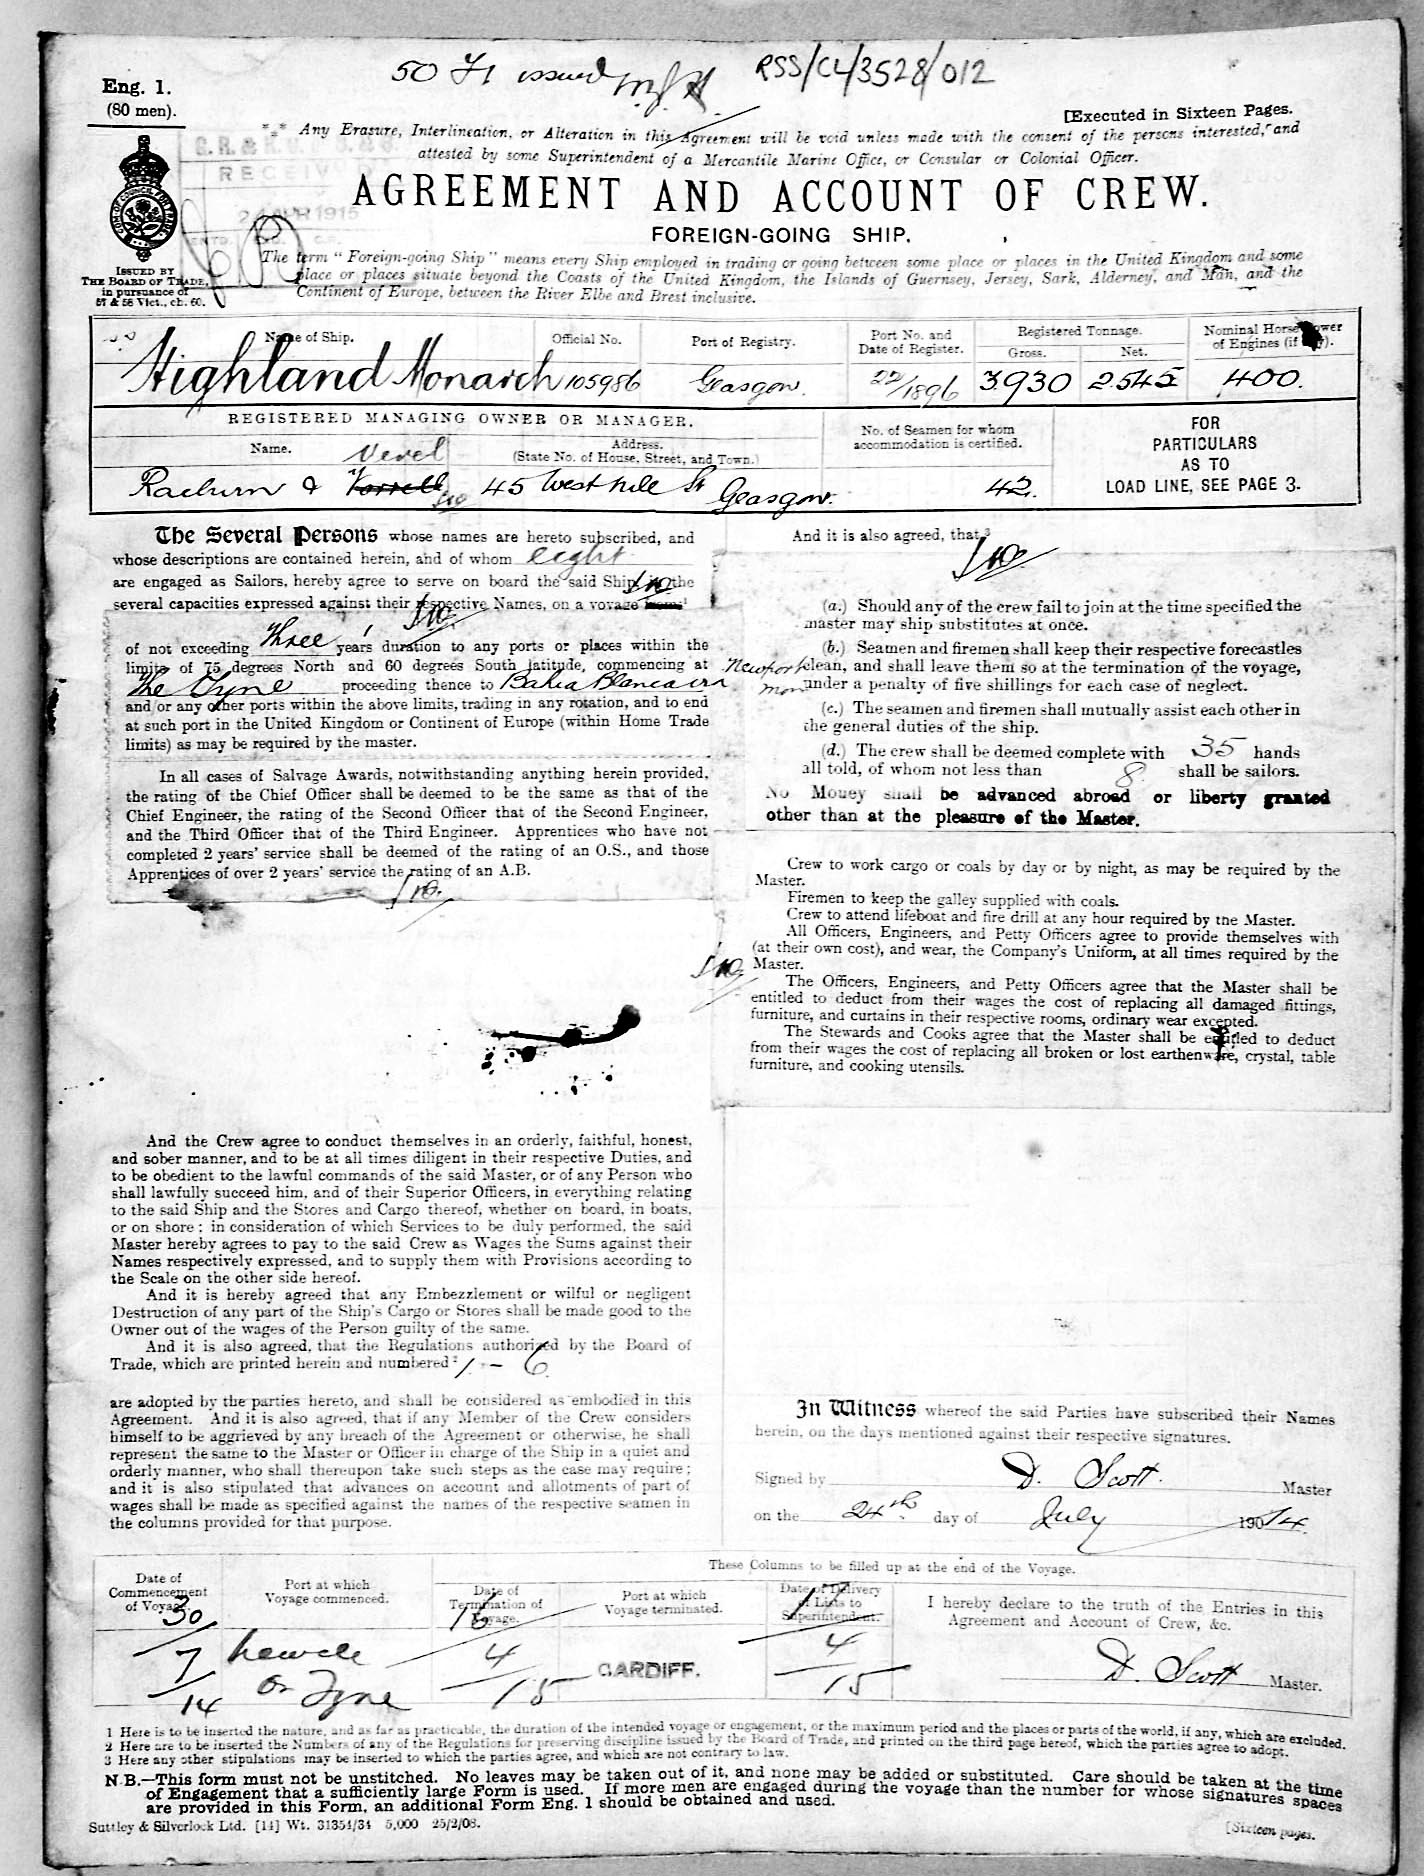 50 F1 issued
RSS/CL/3528/012
Eng. 1.
(80 men).
[Executed in Sixteen Pages.
*** Any Erasure, Interlineation, or Alteration in this Agreement will be void unless made with the consent of the persons interested, and
attested by some Superintendent of a Mercantile Marine Office, or Consular or Colonial Officer.
RECEIV
2 APR 1915
AGREEMENT AND ACCOUNT OF CREW.
FOREIGN-GOING SHIP.
ISSUED BY
THE BOARD OF TRADE,
in pursuance of
57 & 58 Vict., ch. 60.
The term "Foreign-going Ship" means every Ship employed in trading or going between some place or places in the United Kingdom and some
place or places situate beyond the Coasts of the United Kingdom, the Islands of Guernsey, Jersey, Sark, Alderney, and Man, and the
Continent of Europe, between the River Elbe and Brest inclusive.
Name of Ship. Official No. Port of Registry. Port No. and Date of Register. Registered Tonnage. Gross. Net. Nominal Horse Power of Engines (if any).
Highland Monarch 105986 Glasgow. 22/1896 3930 2545 400.
REGISTERED MANAGING OWNER OR MANAGER.
Name. Address. (State No. of House, Street, and Town.)
No. of Seamen for whom accommodation is certified.
FOR PARTICULARS AS TO LOAD LINE, SEE PAGE 3.
Verel
Raeburn & 45 West Nile St Glasgow. 42.
The Several Persons whose names are hereto subscribed, and
whose descriptions are contained herein, and of whom eight
are engaged as Sailors, hereby agree to serve on board the said Ship, in the
several capacities expressed against their respective Names, on a voyage from¹
of not exceeding Three years' duration to any ports or places within the
limits of 75 degrees North and 60 degrees South latitude, commencing at
The Tyne proceeding thence to Bahia Blanca via Newport Mon
and/or any other ports within the above limits, trading in any rotation, and to end
at such port in the United Kingdom or Continent of Europe (within Home Trade
limits) as may be required by the master.
In all cases of Salvage Awards, notwithstanding anything herein provided,
the rating of the Chief Officer shall be deemed to be the same as that of the
Chief Engineer, the rating of the Second Officer that of the Second Engineer,
and the Third Officer that of the Third Engineer. Apprentices who have not
completed 2 years' service shall be deemed of the rating of an O.S., and those
Apprentices of over 2 years' service the rating of an A.B.
And the Crew agree to conduct themselves in an orderly, faithful, honest,
and sober manner, and to be at all times diligent in their respective Duties, and
to be obedient to the lawful commands of the said Master, or of any Person who
shall lawfully succeed him, and of their Superior Officers, in everything relating
to the said Ship and the Stores and Cargo thereof, whether on board, in boats,
or on shore: in consideration of which Services to be duly performed, the said
Master hereby agrees to pay to the said Crew as Wages the Sums against their
Names respectively expressed, and to supply them with Provisions according to
the Scale on the other side hereof.
And it is hereby agreed that any Embezzlement or wilful or negligent
Destruction of any part of the Ship's Cargo or Stores shall be made good to the
Owner out of the wages of the Person guilty of the same.
And it is also agreed, that the Regulations authorized by the Board of
Trade, which are printed herein and numbered² 1 - 6
are adopted by the parties hereto, and shall be considered as embodied in this
Agreement. And it is also agreed, that if any Member of the Crew considers
himself to be aggrieved by any breach of the Agreement or otherwise, he shall
represent the same to the Master or Officer in charge of the Ship in a quiet and
orderly manner, who shall thereupon take such steps as the case may require;
and it is also stipulated that advances on account and allotments of part of
wages shall be made as specified against the names of the respective seamen in
the columns provided for that purpose.
And it is also agreed, that³
(a.) Should any of the crew fail to join at the time specified the
master may ship substitutes at once.
(b.) Seamen and firemen shall keep their respective forecastles
clean, and shall leave them so at the termination of the voyage,
under a penalty of five shillings for each case of neglect.
(c.) The seamen and firemen shall mutually assist each other in
the general duties of the ship.
(d.) The crew shall be deemed complete with 35 hands
all told, of whom not less than 8 shall be sailors.
No Money shall be advanced abroad or liberty granted
other than at the pleasure of the Master.
Crew to work cargo or coals by day or by night, as may be required by the
Master.
Firemen to keep the galley supplied with coals.
Crew to attend lifeboat and fire drill at any hour required by the Master.
All Officers, Engineers, and Petty Officers agree to provide themselves with
(at their own cost), and wear, the Company's Uniform, at all times required by the
Master.
The Officers, Engineers, and Petty Officers agree that the Master shall be
entitled to deduct from their wages the cost of replacing all damaged fittings,
furniture, and curtains in their respective rooms, ordinary wear excepted.
The Stewards and Cooks agree that the Master shall be entitled to deduct
from their wages the cost of replacing all broken or lost earthenware, crystal, table
furniture, and cooking utensils.
In Witness whereof the said Parties have subscribed their Names
herein, on the days mentioned against their respective signatures.
Signed by D. Scott. Master
on the 24th day of July 1914.
These Columns to be filled up at the end of the Voyage.
Date of Commencement of Voyage. Port at which Voyage commenced. Date of Termination of Voyage. Port at which Voyage terminated. Date of Delivery of Lists to Superintendent. I hereby declare to the truth of the Entries in this Agreement and Account of Crew, &c.
30/7/14 Newcle on Tyne 16/4/15 CARDIFF. 17/4/15 D. Scott Master.
1 Here is to be inserted the nature, and as far as practicable, the duration of the intended voyage or engagement, or the maximum period and the places or parts of the world, if any, which are excluded.
2 Here are to be inserted the Numbers of any of the Regulations for preserving discipline issued by the Board of Trade, and printed on the third page hereof, which the parties agree to adopt.
3 Here any other stipulations may be inserted to which the parties agree, and which are not contrary to law.
N.B.—This form must not be unstitched. No leaves may be taken out of it, and none may be added or substituted. Care should be taken at the time
of Engagement that a sufficiently large Form is used. If more men are engaged during the voyage than the number for whose signatures spaces
are provided in this Form, an additional Form Eng. 1 should be obtained and used.
Suttley & Silverlock Ltd. [14] Wt. 31354/34 5,000 25/2/08.
[Sixteen pages.